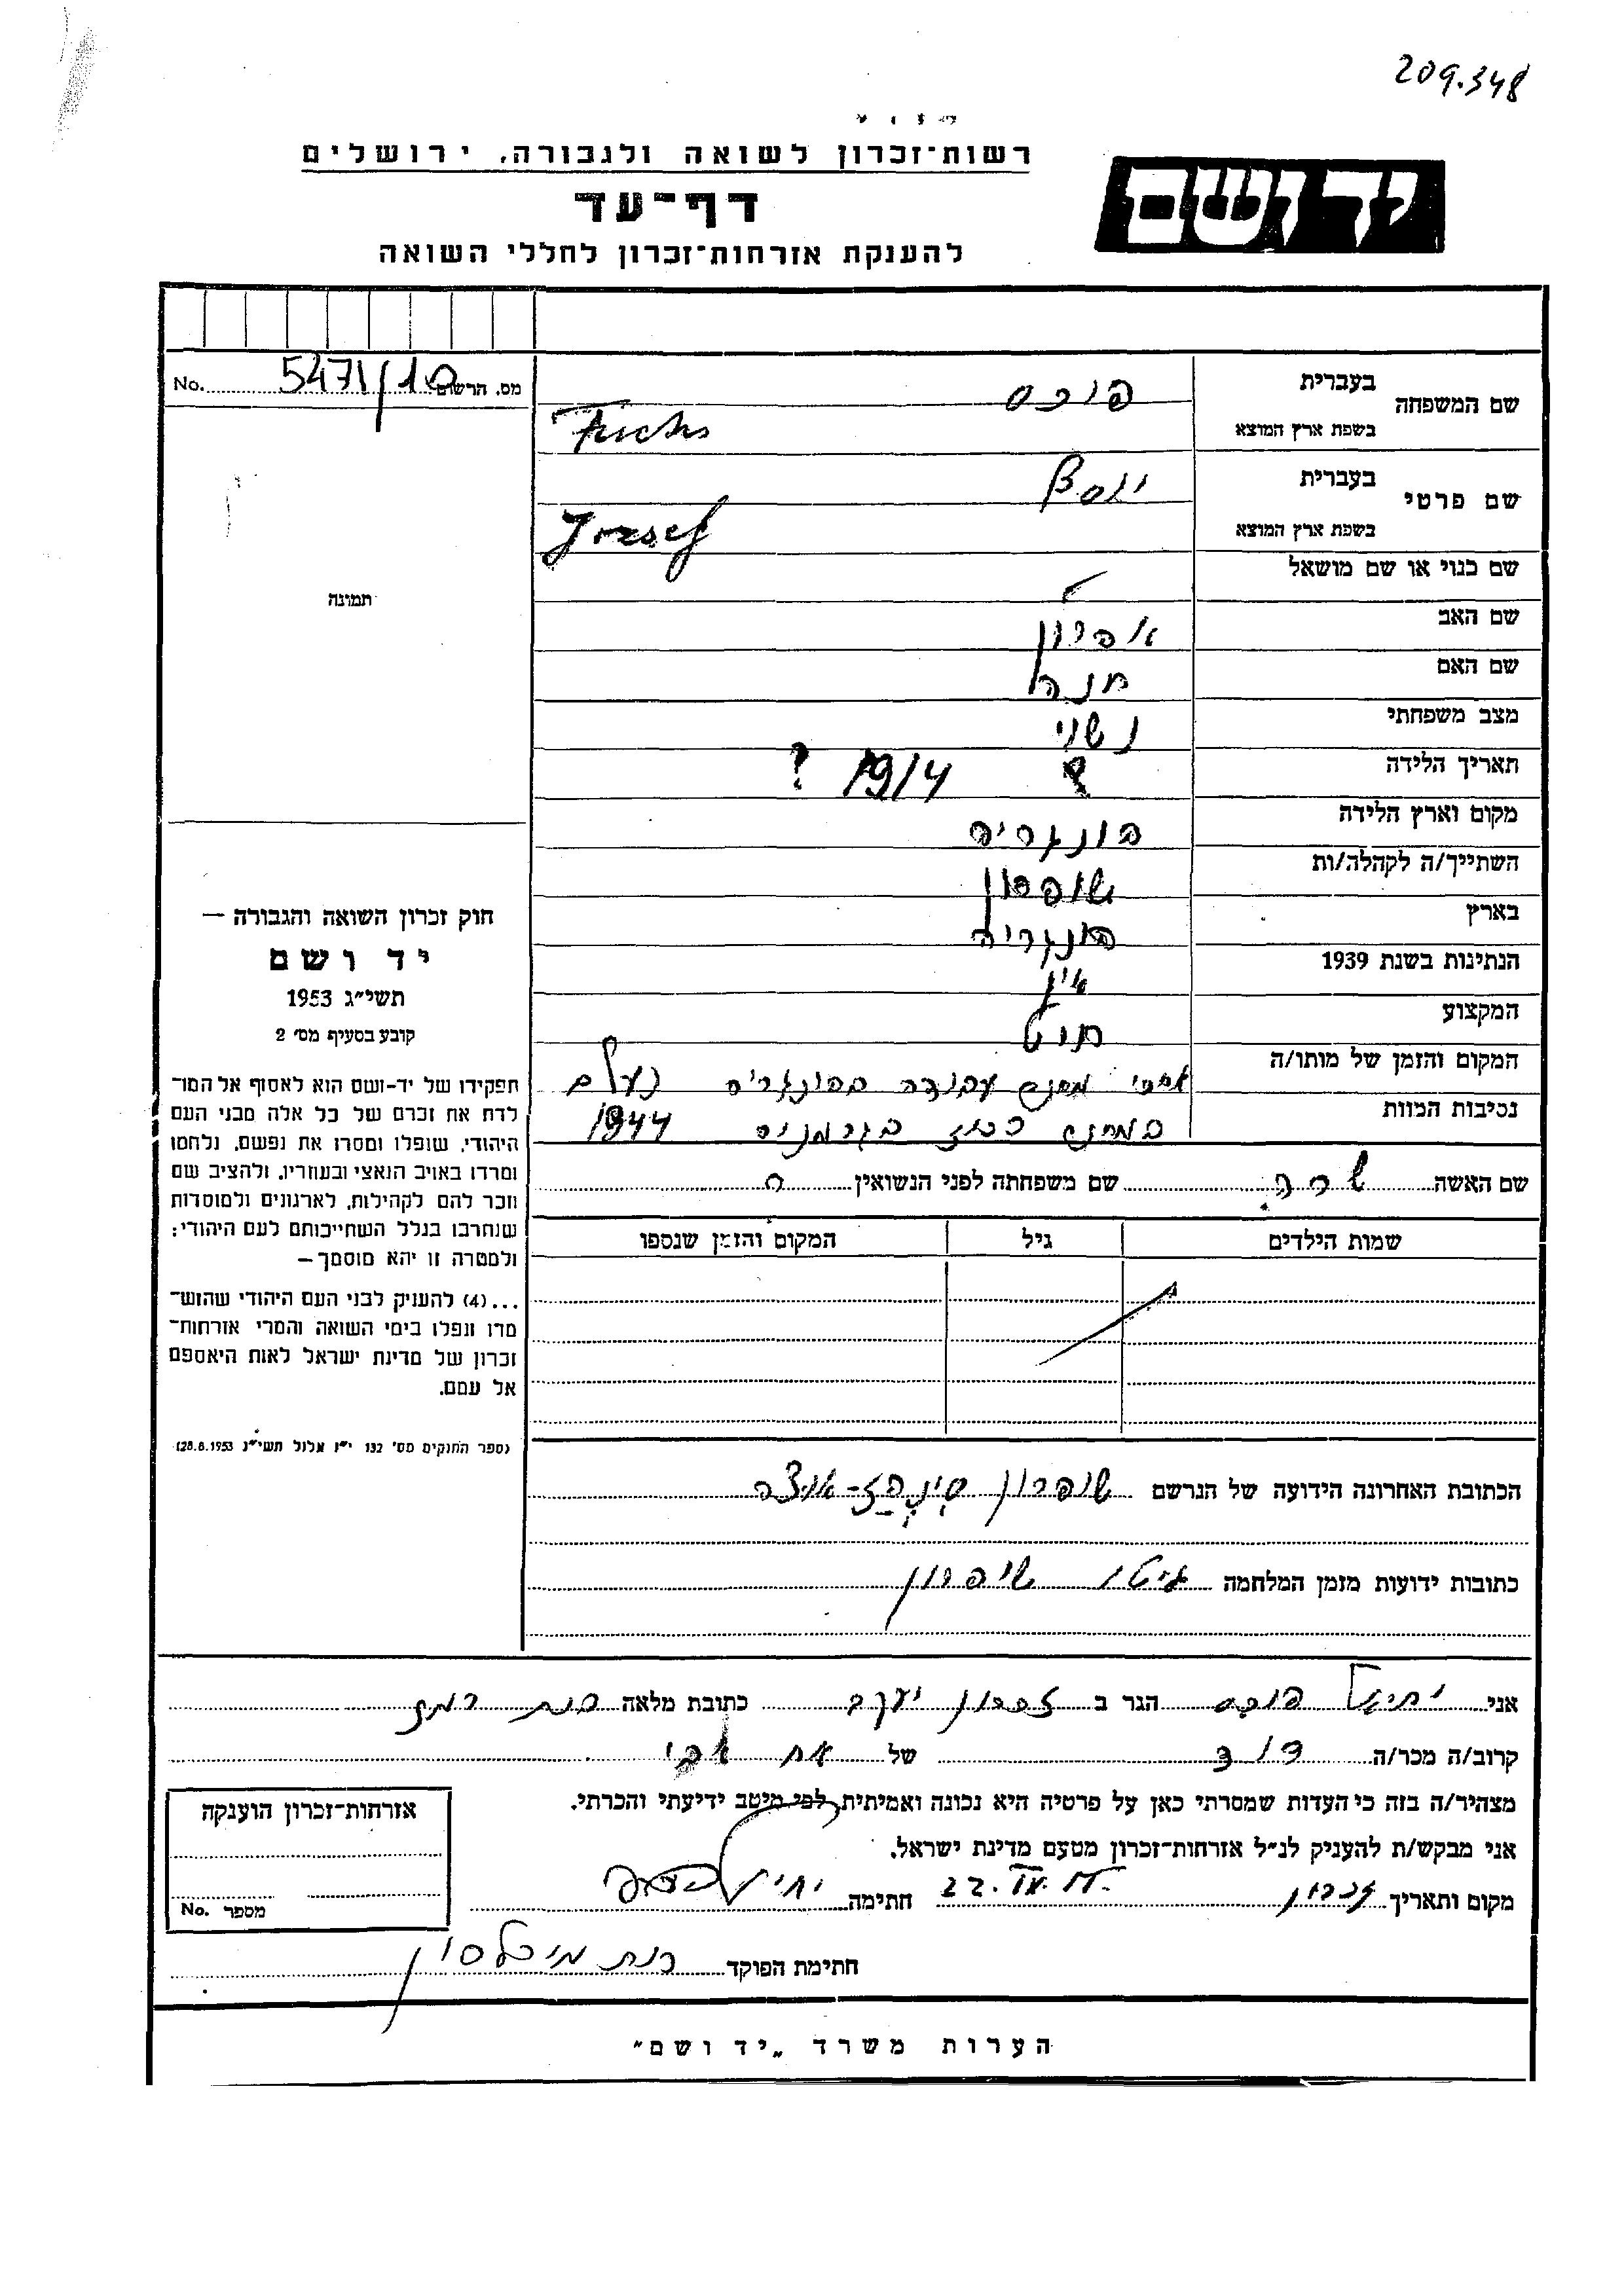 209.348
רשות־זכרון לשואה ולגבורה, ירושלים
יד ושם
דף־עד
להענקת אזרחות־זכרון לחללי השואה
מס. הרשום 5471/10 No.
שם המשפחה
בעברית פוכס
בשפת ארץ המוצא Fuchs
שם פרטי
בעברית יוסף
בשפת ארץ המוצא Jozsef
שם כנוי או שם מושאל
שם האב אפרון
שם האם חנה
מצב משפחתי נשוי
תאריך הלידה ? 1914 ?
מקום וארץ הלידה הונגריה
השתייך/ה לקהלה/ות שופרון
בארץ הונגריה
הנתינות בשנת 1939 אין
המקצוע חוט
המקום והזמן של מותו/ה אחרי מחנה עבודה בהונגריה נעלם
נסיבות המוות במחנה רכוז בגרמניה 1944
שם האשה שרה שם משפחתה לפני הנשואין
שמות הילדים גיל המקום והזמן שנספו
הכתובת האחרונה הידועה של הנרשם שופרון
כתובות ידועות מזמן המלחמה גיטו שופרון
תמונה
חוק זכרון השואה והגבורה —
יד ושם
תשי״ג 1953
קובע בסעיף מס׳ 2
תפקידו של יד-ושם הוא לאסוף אל המו־
לדת את זכרם של כל אלה מבני העם
היהודי, שנפלו ומסרו את נפשם, נלחמו
ומרדו באויב הנאצי ובעוזריו, ולהציב שם
וזכר להם לקהילות, לארגונים ולמוסדות
שנחרבו בגלל השתייכותם לעם היהודי;
ולמטרה זו יהא מוסמך —
...(4) להעניק לבני העם היהודי שהוש־
מדו ונפלו בימי השואה והמרי אזרחות־
זכרון של מדינת ישראל לאות היאספם
אל עמם.
(ספר החוקים מס׳ 132 י״ז אלול תשי״ג 28.8.1953)
אני יחיאל פוכס הגר ב זכרון יעקב כתובת מלאה רמת
קרוב/ה מכר/ה דוד של אח אבי
מצהיר/ה בזה כי העדות שמסרתי כאן על פרטיה היא נכונה ואמיתית, לפי מיטב ידיעתי והכרתי.
אני מבקש/ת להעניק לנ״ל אזרחות־זכרון מטעם מדינת ישראל.
מקום ותאריך זכרון 22. חתימה יחיאל פוכס
חתימת הפוקד רות מיכלסון
אזרחות־זכרון הוענקה
מספר No.
הערות משרד „יד ושם״